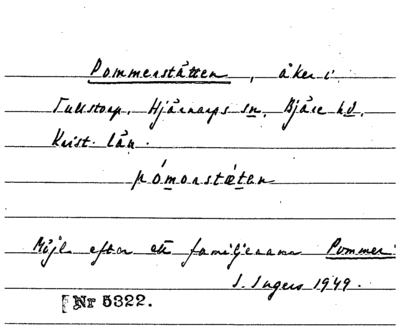 Pommerstätten, åker i
Tullstorp, Hjärnarps sn, Bjäre hd,
Krist. län.
pómorstæ̀ten
Möjl. efter ett familjenamn Pommer.
I. Ingers 1949.
Nr 5322.